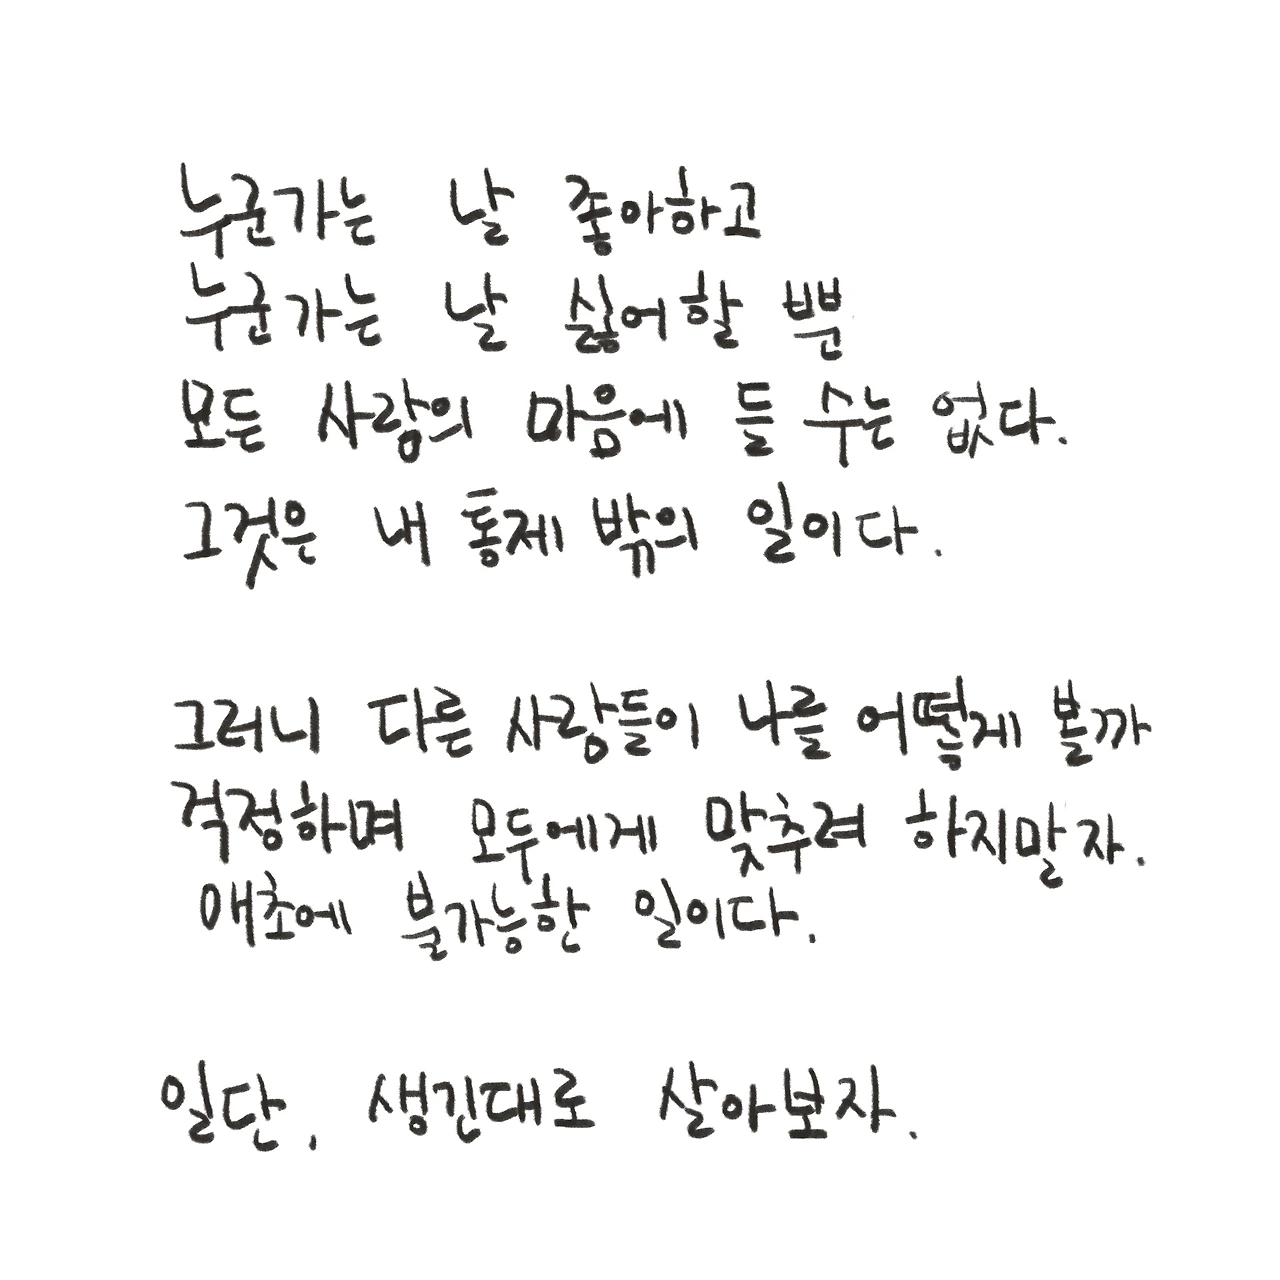 누군가는 날 좋아하고
누군가는 날 싫어할 뿐
모든 사람의 마음에 들 수는 없다.
그것은 내 통제 밖의 일이다.
그러니 다른 사람들이 나를 어떻게 볼까
걱정하며 모두에게 맞추려 하지말자.
애초에 불가능한 일이다.
일단, 생긴대로 살아보자.